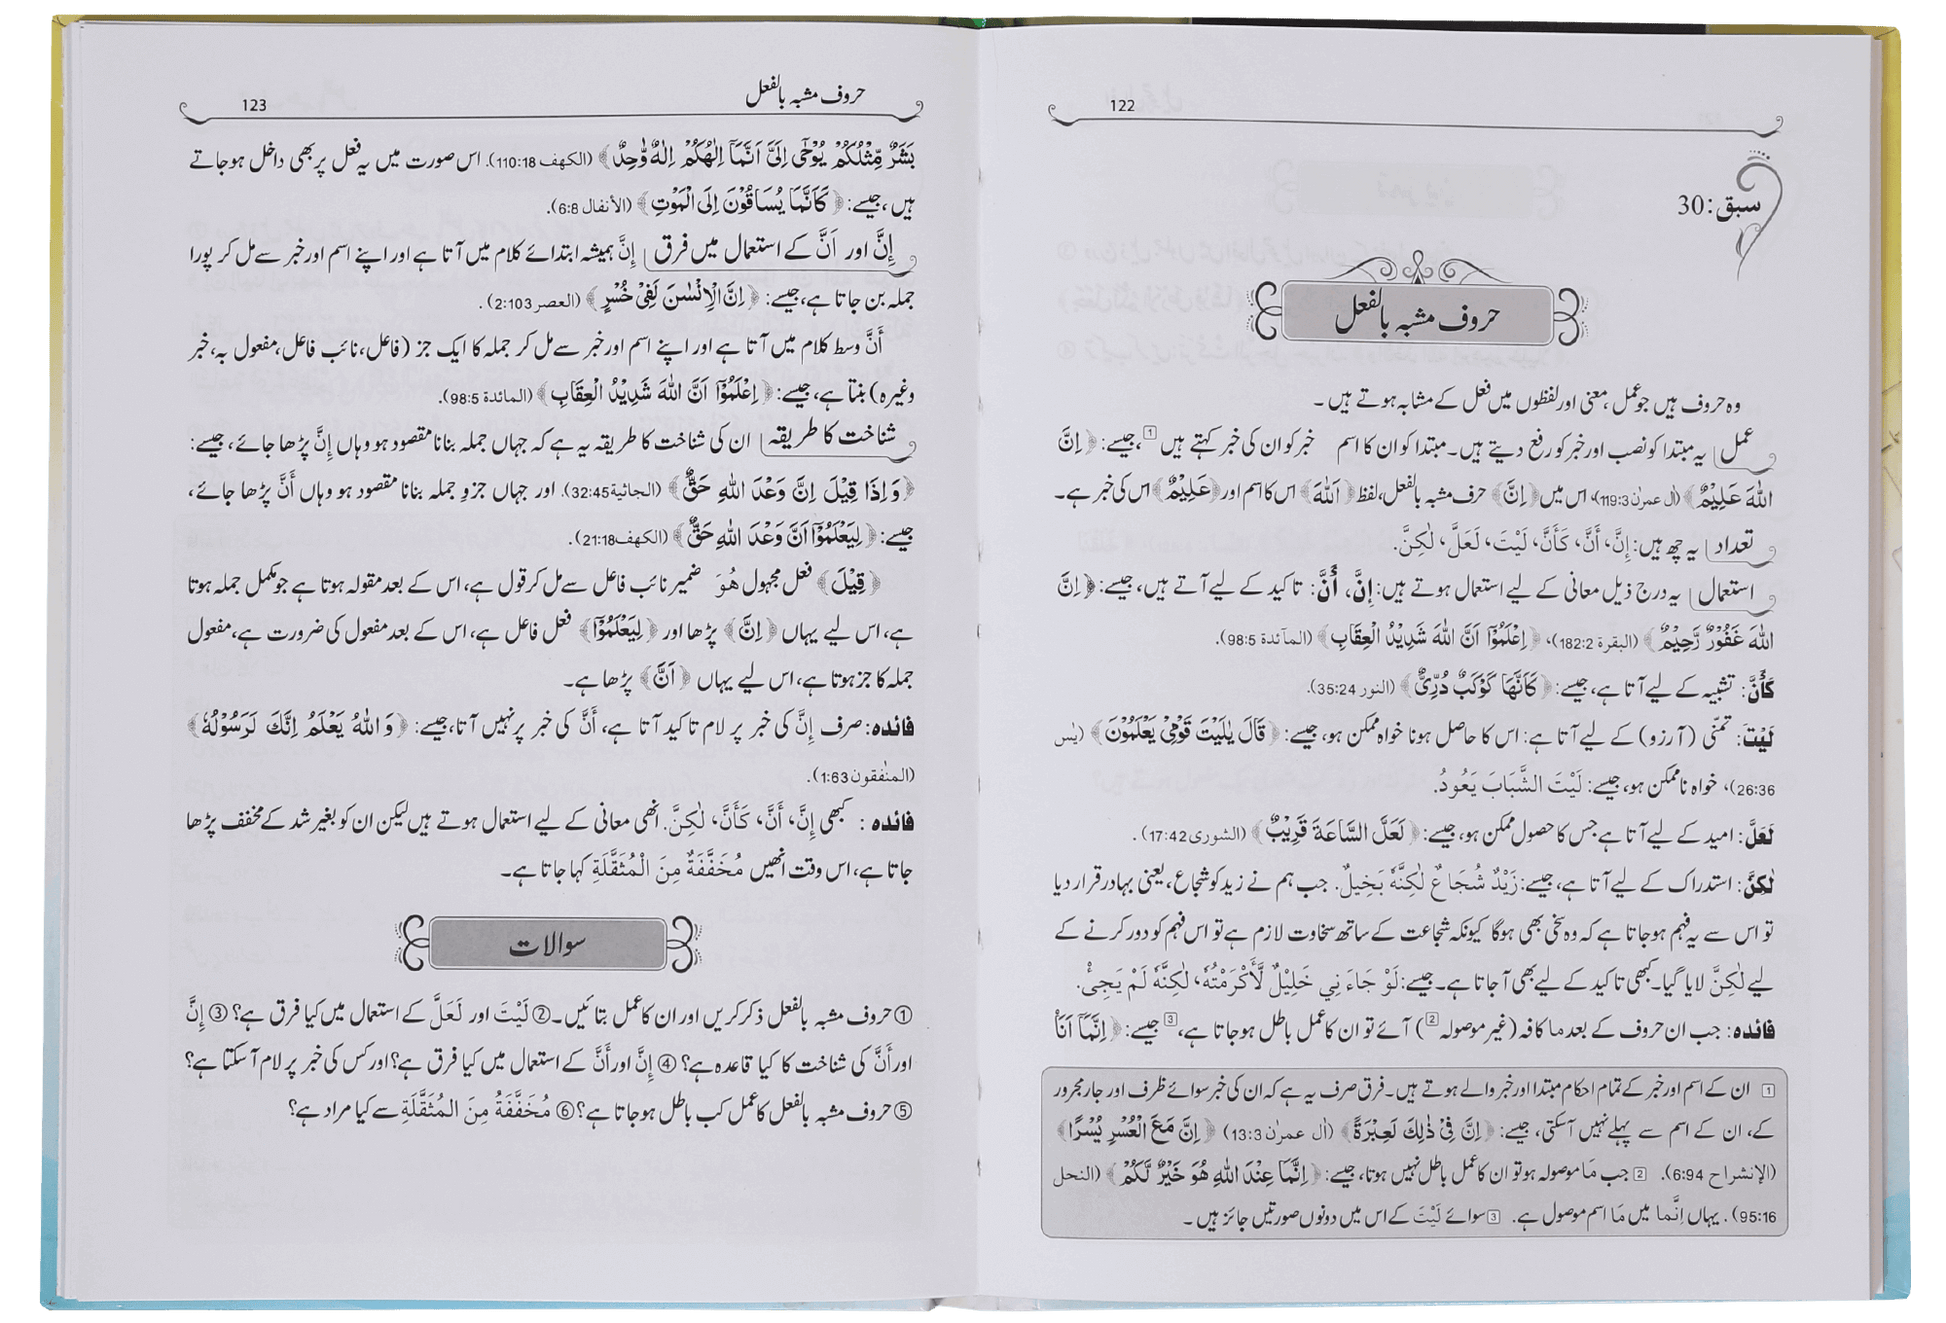 122
سبق:30
حروف مشبہ بالفعل
وہ حروف ہیں جو عمل، معنی اور لفظوں میں فعل کے مشابہ ہوتے ہیں۔
عمل یہ مبتدا کو نصب اور خبر کو رفع دیتے ہیں۔ مبتدا کو ان کا اسم خبر کو ان کی خبر کہتے ہیں [1]، جیسے: ﴿اِنَّ
اللّٰهَ عَلِيْمٌ﴾ (اٰل عمرٰن 119:3)، اس میں ﴿اِنَّ﴾ حرف مشبہ بالفعل، لفظ ﴿اَللّٰهَ﴾ اس کا اسم اور ﴿عَلِيْمٌ﴾ اس کی خبر ہے۔
تعداد یہ چھ ہیں: إِنَّ، أَنَّ، كَأَنَّ، لَيْتَ، لَعَلَّ، لٰكِنَّ.
استعمال یہ درج ذیل معانی کے لیے استعمال ہوتے ہیں: إِنَّ، أَنَّ: تاکید کے لیے آتے ہیں، جیسے: ﴿اِنَّ
اللّٰهَ غَفُوْرٌ رَّحِيْمٌ﴾ (البقرة 182:2)، ﴿اِعْلَمُوْٓا اَنَّ اللّٰهَ شَدِيْدُ الْعِقَابِ﴾ (المآئدة 98:5).
كَأَنَّ: تشبیہ کے لیے آتا ہے، جیسے: ﴿كَاَنَّهَا كَوْكَبٌ دُرِّيٌّ﴾ (النور 35:24).
لَيْتَ: تمنّی (آرزو) کے لیے آتا ہے: اس کا حاصل ہونا خواہ ممکن ہو، جیسے: ﴿قَالَ يٰلَيْتَ قَوْمِيْ يَعْلَمُوْنَ﴾ (يٰس
26:36)، خواہ ناممکن ہو، جیسے: لَيْتَ الشَّبَابَ يَعُودُ.
لَعَلَّ: امید کے لیے آتا ہے جس کا حصول ممکن ہو، جیسے: ﴿لَعَلَّ السَّاعَةَ قَرِيْبٌ﴾ (الشورى 17:42).
لٰكِنَّ: استدراک کے لیے آتا ہے، جیسے: زَيْدٌ شُجَاعٌ لٰكِنَّهٗ بَخِيلٌ. جب ہم نے زید کو شجاع، یعنی بہادر قرار دیا
تو اس سے یہ فہم ہو جاتا ہے کہ وہ سخی بھی ہوگا کیونکہ شجاعت کے ساتھ سخاوت لازم ہے تو اس فہم کو دور کرنے کے
لیے لٰكِنَّ لایا گیا۔ کبھی تاکید کے لیے بھی آجاتا ہے۔ جیسے: لَوْ جَاءَنِي خَلِيْلٌ لَّأَكْرَمْتُهٗ، لٰكِنَّهٗ لَمْ يَجِئْ.
فائدہ: جب ان حروف کے بعد ما کافہ (غیر موصولہ [2]) آئے تو ان کا عمل باطل ہو جاتا ہے، [3] جیسے: ﴿اِنَّمَآ اَنَا۠
[1] ان کے اسم اور خبر کے تمام احکام مبتدا اور خبر والے ہوتے ہیں۔ فرق صرف یہ ہے کہ ان کی خبر سوائے ظرف اور جار مجرور
کے، ان کے اسم سے پہلے نہیں آسکتی، جیسے: ﴿اِنَّ فِيْ ذٰلِكَ لَعِبْرَةً﴾ (اٰل عمرٰن 13:3) ﴿اِنَّ مَعَ الْعُسْرِ يُسْرًا﴾
(الإنشراح 6:94). [2] جب مَا موصولہ ہو تو ان کا عمل باطل نہیں ہوتا، جیسے: ﴿اِنَّمَا عِنْدَ اللّٰهِ هُوَ خَيْرٌ لَّكُمْ﴾ (النحل
95:16). یہاں اِنَّمَا میں مَا اسم موصول ہے. [3] سوائے لَيْتَ کے اس میں دونوں صورتیں جائز ہیں۔
123
حروف مشبہ بالفعل
بَشَرٌ مِّثْلُكُمْ يُوْحٰٓى اِلَيَّ اَنَّمَآ اِلٰهُكُمْ اِلٰهٌ وَّاحِدٌ﴾ (الكهف 110:18). اس صورت میں یہ فعل پر بھی داخل ہو جاتے
ہیں، جیسے: ﴿كَاَنَّمَا يُسَاقُوْنَ اِلَى الْمَوْتِ﴾ (الأنفال 6:8).
إِنَّ اور اَنَّ کے استعمال میں فرق إِنَّ ہمیشہ ابتدائے کلام میں آتا ہے اور اپنے اسم اور خبر سے مل کر پورا
جملہ بن جاتا ہے، جیسے: ﴿اِنَّ الْاِنْسٰنَ لَفِيْ خُسْرٍ﴾ (العصر 2:103).
أَنَّ وسط کلام میں آتا ہے اور اپنے اسم اور خبر سے مل کر جملہ کا ایک جز (فاعل، نائب فاعل، مفعول بہ، خبر
وغیرہ) بنتا ہے، جیسے: ﴿اِعْلَمُوْٓا اَنَّ اللّٰهَ شَدِيْدُ الْعِقَابِ﴾ (المائدة 98:5).
شناخت کا طریقہ ان کی شناخت کا طریقہ یہ ہے کہ جہاں جملہ بنانا مقصود ہو وہاں إِنَّ پڑھا جائے، جیسے:
﴿وَاِذَا قِيْلَ اِنَّ وَعْدَ اللّٰهِ حَقٌّ﴾ (الجاثية 32:45). اور جہاں جزوِ جملہ بنانا مقصود ہو وہاں أَنَّ پڑھا جائے،
جیسے: ﴿لِيَعْلَمُوْٓا اَنَّ وَعْدَ اللّٰهِ حَقٌّ﴾ (الكهف 21:18).
﴿قِيْلَ﴾ فعل مجہول هُوَ ضمیر نائب فاعل سے مل کر قول ہے، اس کے بعد مقولہ ہوتا ہے جو مکمل جملہ ہوتا
ہے، اس لیے یہاں ﴿اِنَّ﴾ پڑھا اور ﴿لِيَعْلَمُوْٓا﴾ فعل فاعل ہے، اس کے بعد مفعول کی ضرورت ہے، مفعول
جملہ کا جز ہوتا ہے، اس لیے یہاں ﴿اَنَّ﴾ پڑھا ہے۔
فائدہ: صرف إِنَّ کی خبر پر لام تاکید آتا ہے، أَنَّ کی خبر پر نہیں آتا، جیسے: ﴿وَاللّٰهُ يَعْلَمُ اِنَّكَ لَرَسُوْلُهٗ﴾
(المنٰفقون 1:63).
فائدہ: کبھی إِنَّ، أَنَّ، كَأَنَّ، لٰكِنَّ. انھی معانی کے لیے استعمال ہوتے ہیں لیکن ان کو بغیر شد کے مخفف پڑھا
جاتا ہے، اس وقت انھیں مُخَفَّفَةٌ مِنَ الْمُثَقَّلَةِ کہا جاتا ہے۔
سوالات
① حروف مشبہ بالفعل ذکر کریں اور ان کا عمل بتائیں۔ ② لَيْتَ اور لَعَلَّ کے استعمال میں کیا فرق ہے؟ ③ إِنَّ
اور أَنَّ کی شناخت کا کیا قاعدہ ہے؟ ④ إِنَّ اور أَنَّ کے استعمال میں کیا فرق ہے؟ اور کس کی خبر پر لام آسکتا ہے؟
⑤ حروف مشبہ بالفعل کا عمل کب باطل ہو جاتا ہے؟ ⑥ مُخَفَّفَةٌ مِنَ المُثَقَّلَةِ سے کیا مراد ہے؟